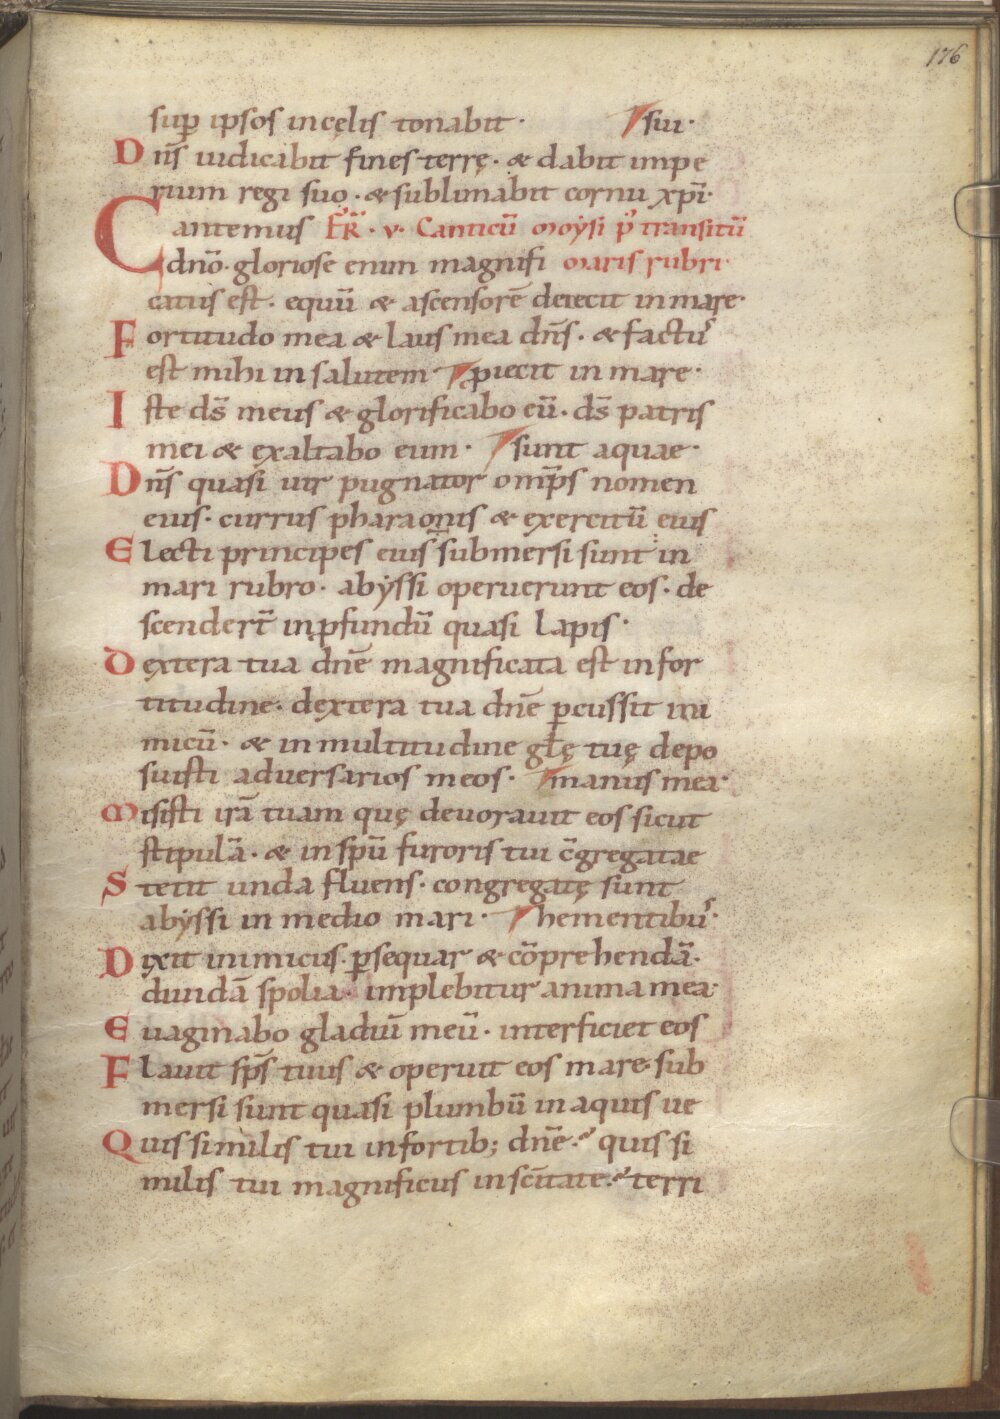 176
sup̄ ipsos in cęlis tonabit · sui·
Dn̄s iudicabit fines terrę· & dabit impe
rium regi suo · & sublimabit cornu xp̄i·
Cantemus FR̄ · v · Canticū moẏsi p̄ transitū
dn̄o· gloriose enim magnifi maris rubri·
catus est · equū & ascensorē deiecit in mare·
Fortitudo mea & laus mea dn̄s · & factuꝰ
est mihi in salutem ꝓiecit in mare·
Iste ds̄ meus & glorificabo eū · ds̄ patris
mei & exaltabo eum · sunt aquae·
Dn̄s quasi uir pugnator omp̄s nomen
eius· currus pharaonis & exercitū eius
Electi principes eius submersi sunt in
mari rubro · abẏssi operuerunt eos · de
scendert̄ in ꝓfundū quasi lapis ·
Dextera tua dn̄e magnificata est in for
titudine· dextera tua dn̄e ꝑcussit ini
micū · & in multitudine gl̄ę tuę depo
suisti adversarios meos · manus mea·
Misisti irā tuam quę deuorauit eos sicut
stipulā · & in sp̄u furoris tui c̄gregatae
Stetit unda fluens · congregatę sunt
abẏssi in medio mari · hementibuꝰ·
Dixit inimicus· ꝑsequar & cōprehendā·
diuidā spolia· implebitur anima mea·
Euaginabo gladiū meū · interficiet eos
Flauit sp̄s tuus & operuit eos mare· sub
mersi sunt quasi plumbū in aquis ue
Quis similis tui in fortib; dn̄e · quis si
milis tui magnificus in sc̄itate · terri